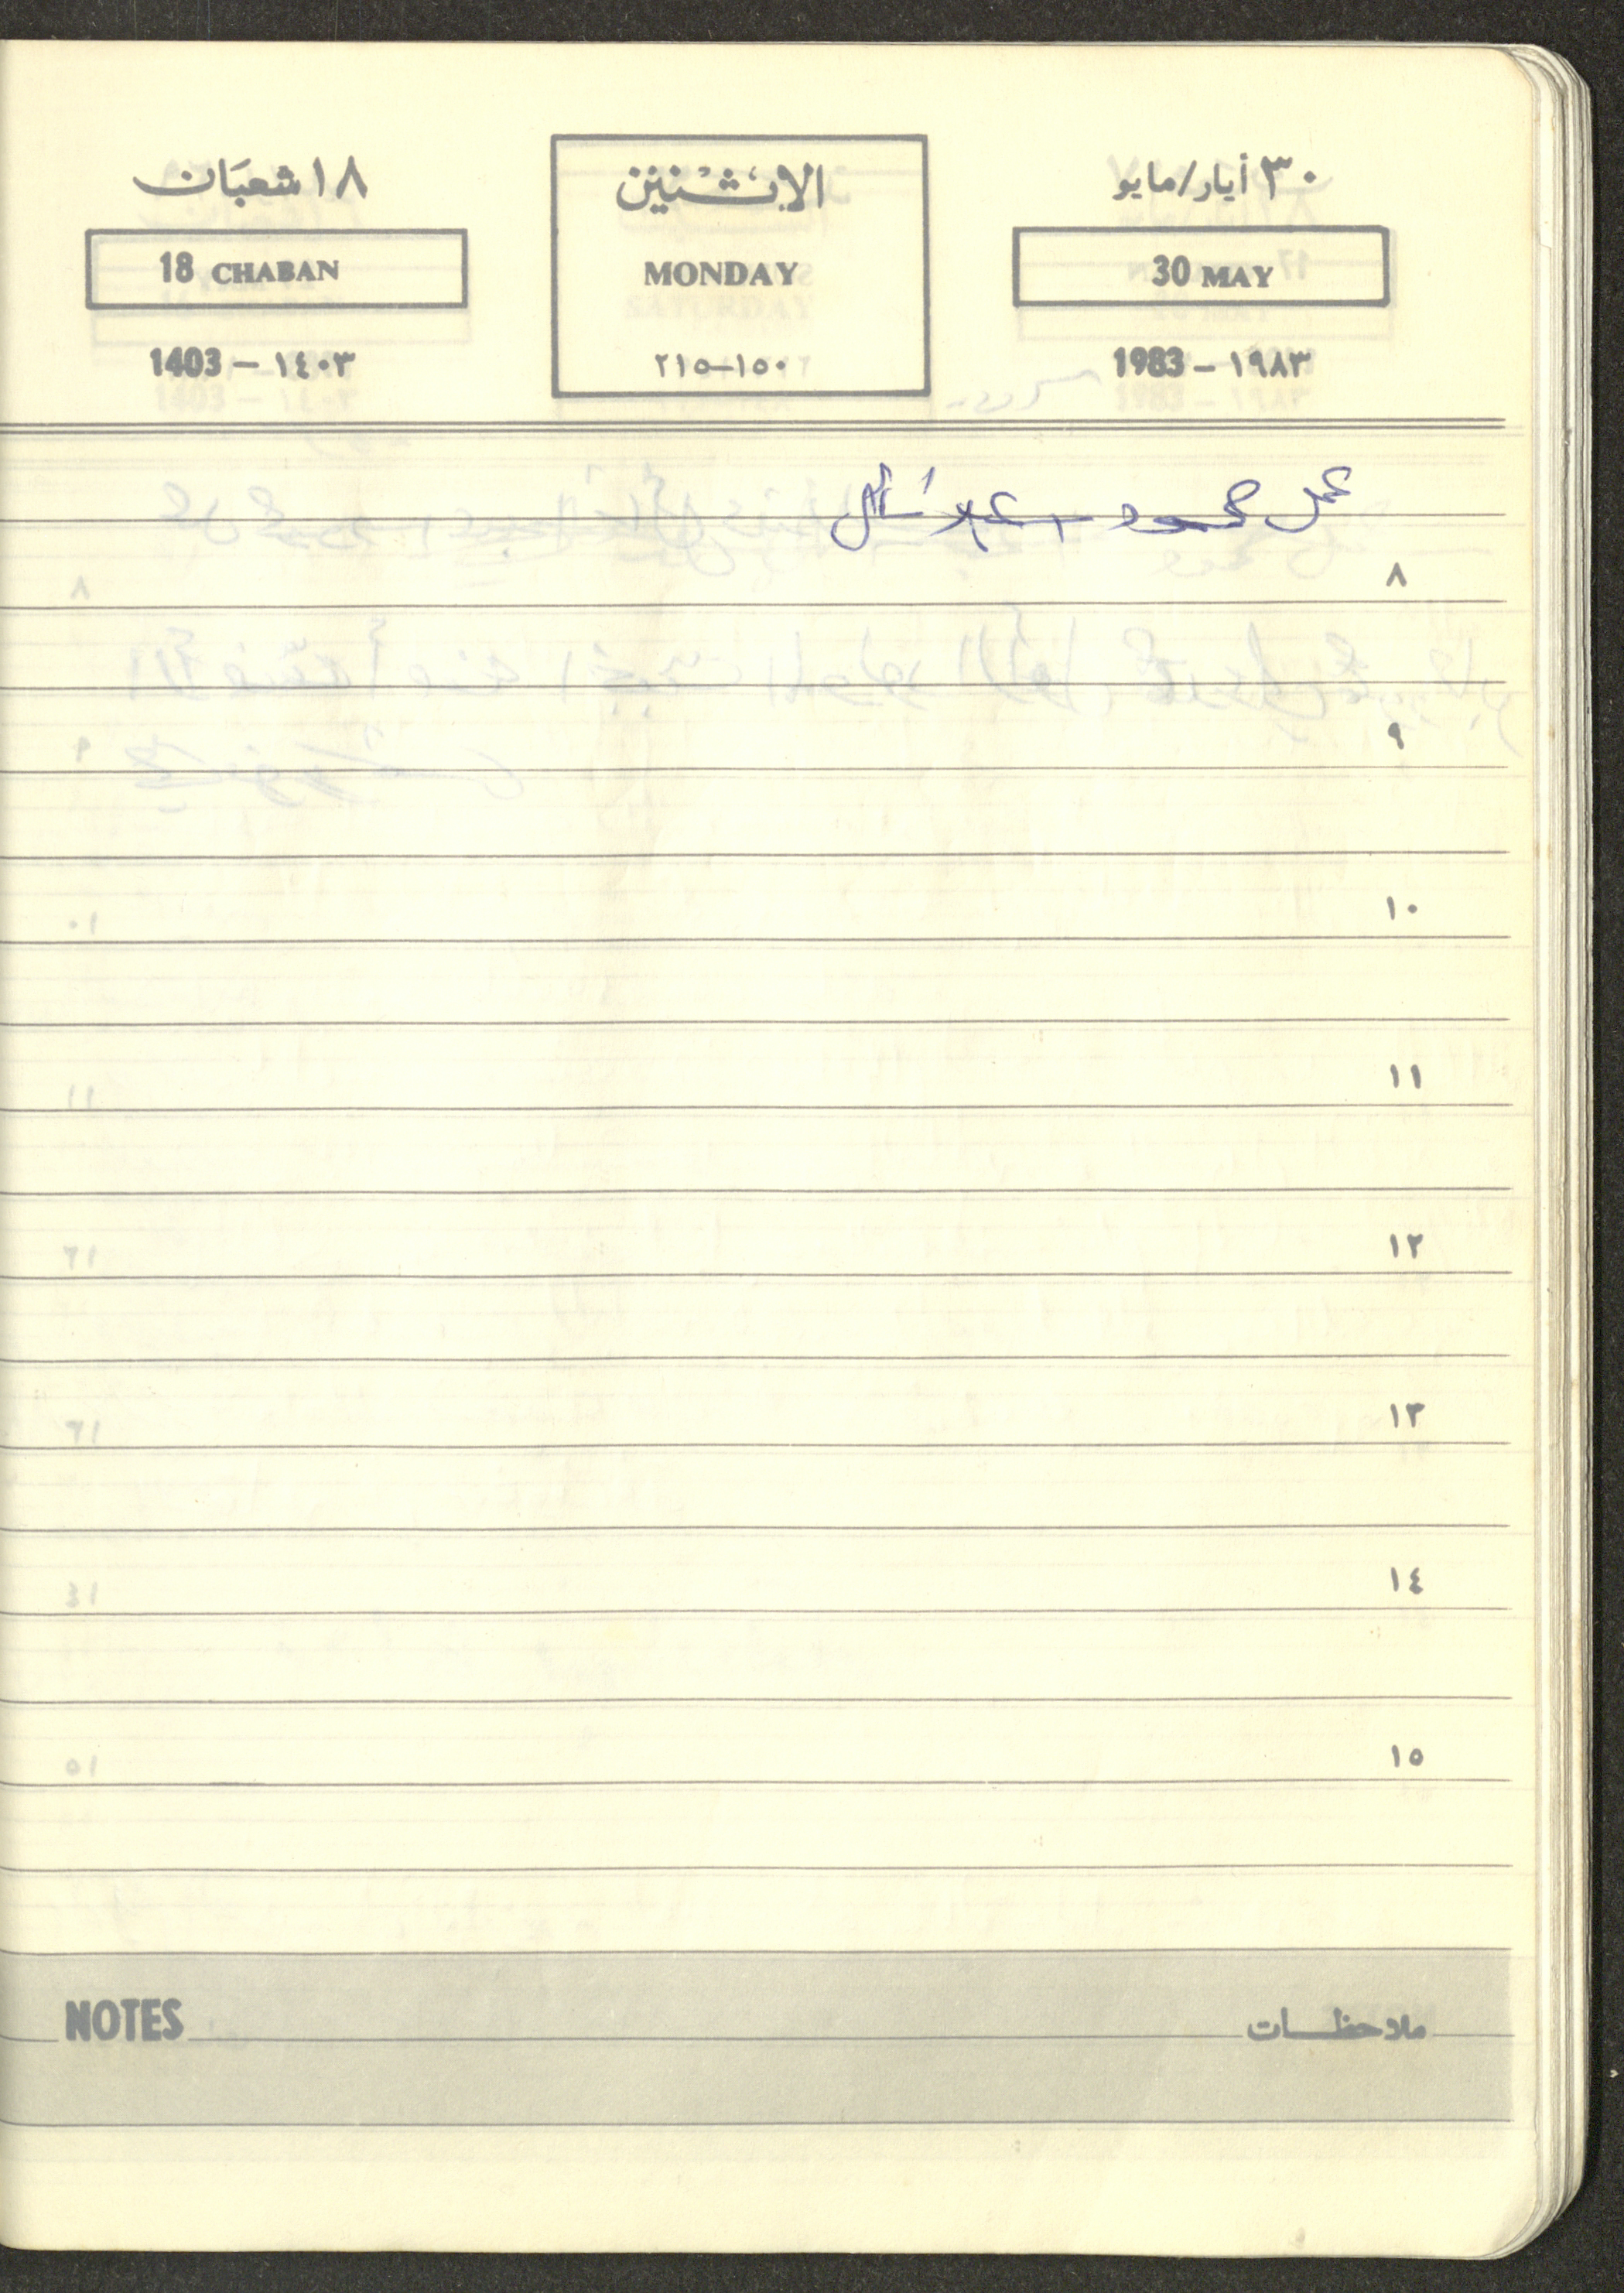 ٣٠ أيار/مايو الاثنين ١٨ شعبان
30 MAY MONDAY 18 CHABAN
1983 – ١٩٨٣ ٢١٥–١٥٠ 1403 – ١٤٠٣
عمل محمود
٨
٩
١٠
١١
١٢
١٣
١٤
١٥
ملاحظات NOTES